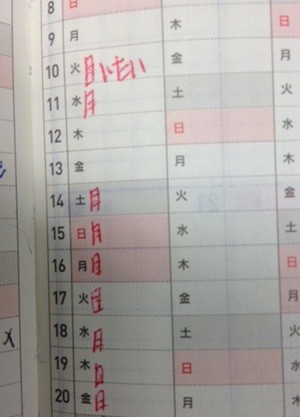 8 日
9 月 木 日
10 火 いたい 金 月
11 水 月 土 火
12 木 日 水
13 金 月 木
14 土 月 火 金
15 日 月 水 土
16 月 月 木 日
17 火 金 月
18 水 土 火
X
19 木 日 水
20 金 月 木